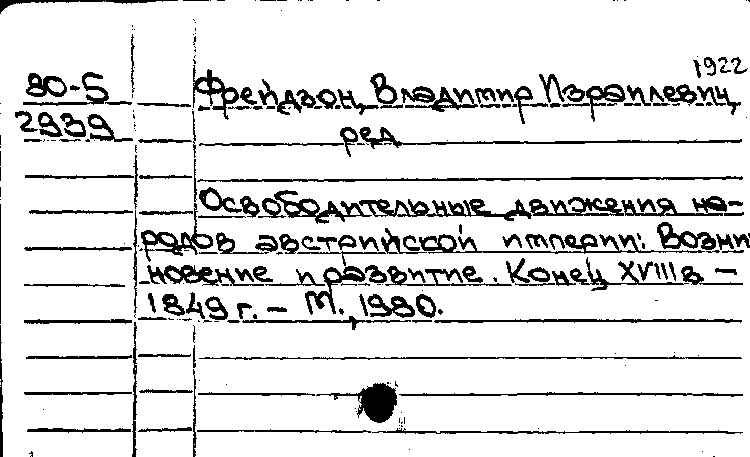 1922
80-5 Фрейдзон, Владимир Израилевич,
2939 ред
Освободительные движения на-
родов австрийской империи: Возни
новение и развитие. Конец XVIII в –
1849 г. – М., 1980.